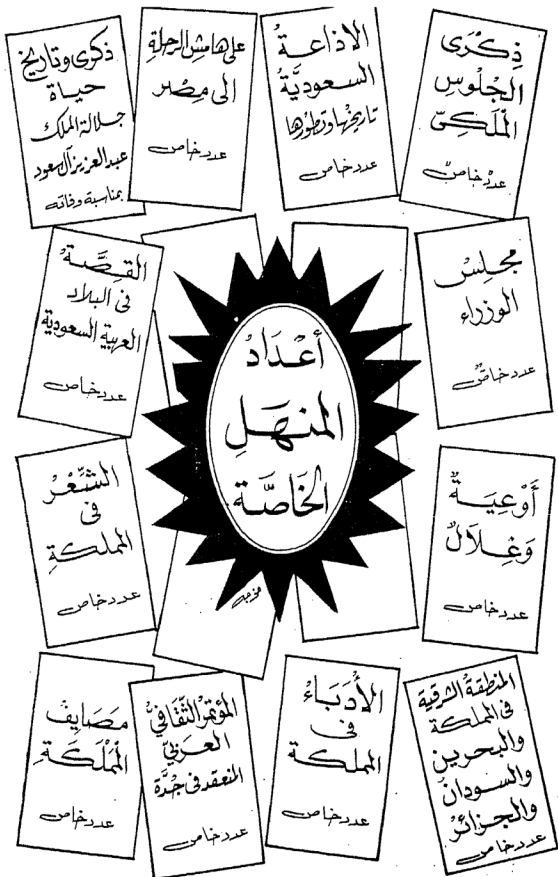 ذِكْرَى
الجُلُوسِ
المَلَكِىّ
عدد خاصّ
الاذاعة
السعوديّة
تاريخها وتطورها
عدد خاص
على هامش الرحلة
الى مِصْر
عدد خاص
ذكرى وتاريخ
حياة
جلالة الملك
عبدالعزيز آل سعود
بمناسبة وفاته
مجلِسْ
الوزراء
عدد خاصّ
القِصَّة
فى البلاد
العربية السعودية
عدد خاص
أعْدَادُ
المنهَلِ
الخَاصَّة
أوْعِيَةٌ
وَغِلَالٌ
عدد خاص
الشِّعْر
فى
المملكةِ
عدد خاص
المنطقة الشرقية
فى المملكة
والبحرين
والسودان
والجزائر
عدد خاص
الأُدَبَاءُ
فى
المملكة
عدد خاص
المؤتمر الثقافيُّ
العربيّ
المنعقد فى جُدَّة
عدد خاص
مَصَايِفُ
المَمْلَكَةِ
عدد خاص